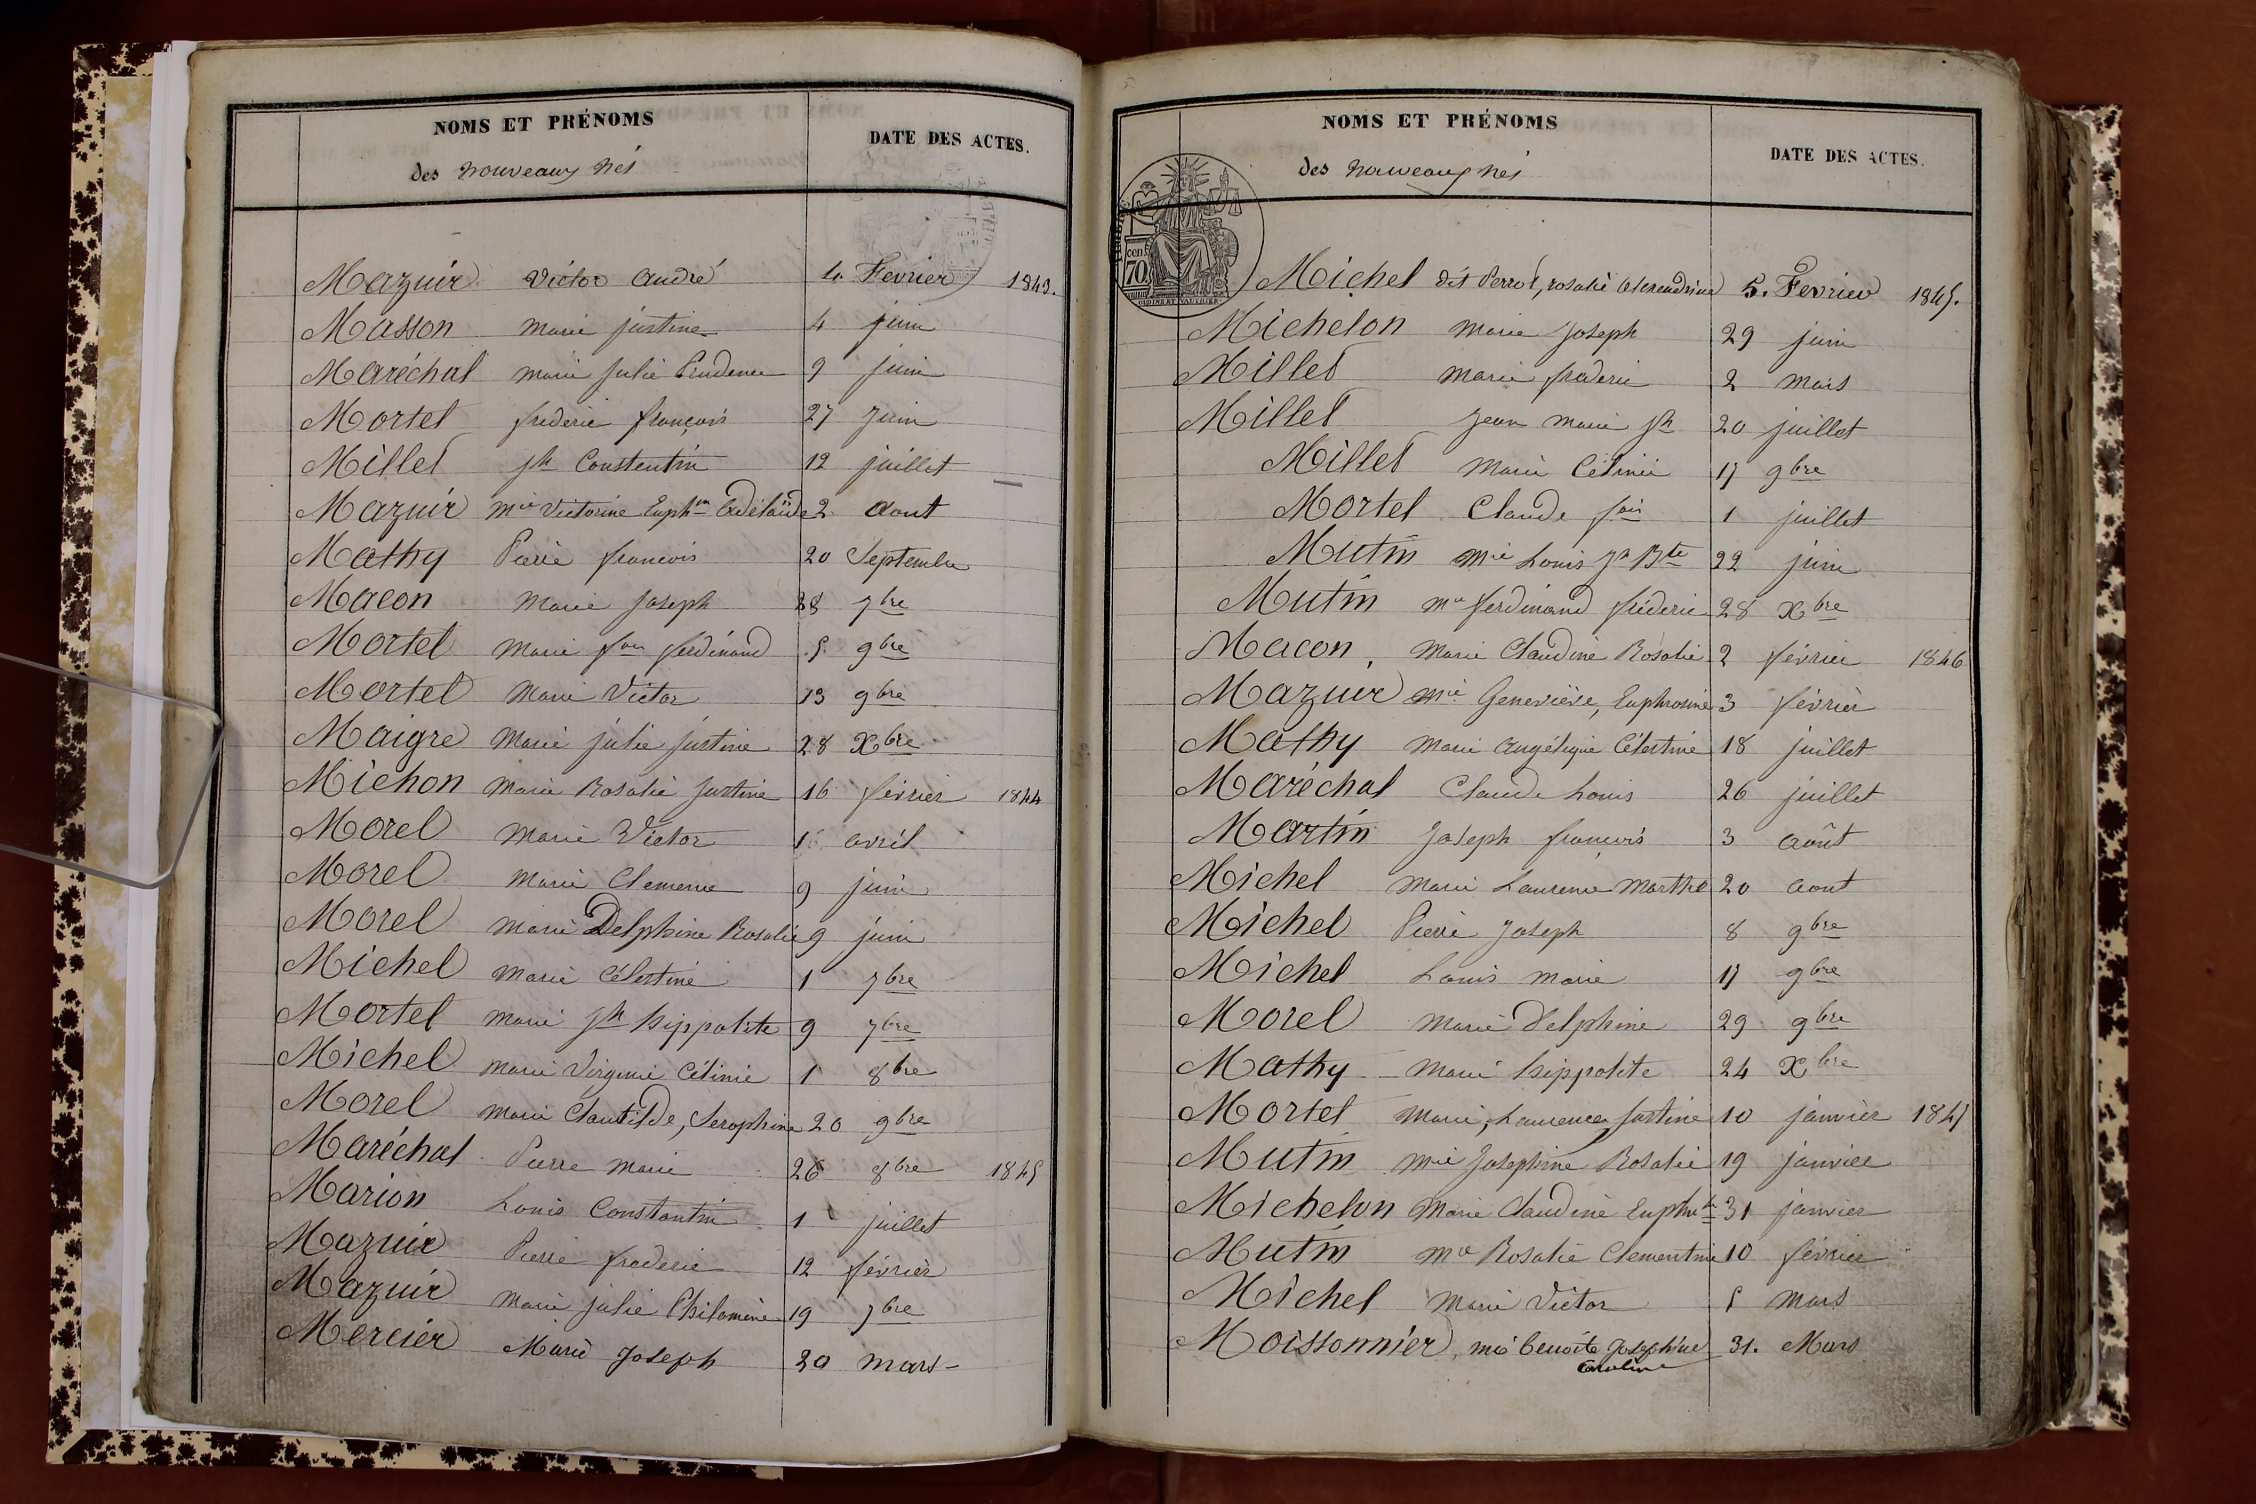 NOMS ET PRÉNOMS
des nouveaux nés
DATE DES ACTES.
Mazuir Victor André 4 Fevrier 1843.
Masson Marie justine 4 juin
Maréchal marie Julie Prudence 9 juin
Mortel frederic françois 27 juin
Millet jh Constentin 12 juillet
Mazuir Mie Victorine Euphne Adélaïde 2 Aout
Mathy Pierre francois 20 Septembre
Macon Marie Joseph 28 7bre
Mortel Marie fois ferdinand 5 9bre
Mortel Marie Victor 13 9bre
Maigre Marie julie justine 28 Xbre
Michon Marie Rosalie Justine 16 février 1844
Morel Marie Victor avril
Morel Marie Clemence 9 juin
Morel Marie Delphine Rosalie 9 juin
Michel Marie Célestine 1 7bre
Mortel Marie jh hippolite 9 7bre
Michel Marie Virginie Célinie 1 8bre
Morel Marie Clautilde, Seraphine 20 9bre
Maréchal Pierre Marie 26 8bre 1845
Marion Louis Constantin 1 juillet
Mazuir Pierre frederic 12 février
Mazuir Marie julie Philomène 19 7bre
Mercier Marie Joseph 20 mars
NOMS ET PRÉNOMS
des nouveaux nés
DATE DES ACTES.
cent. 70
Michel dit Perrot, rosalie Alexandrine 5. Fevrier 1845.
Michelon Marie Joseph 29 juin
Millet Marie frederic 2 mars
Millet Jean Marie jh 20 juillet
Millet Marie Célinie 17 9bre
Mortel Claude fois 1 juillet
Mutin Mie Louis Jn Bte 22 juin
Mutin Mie ferdinand fréderic 28 Xbre
Macon, Marie Claudine Rosalie 2 février 1846
Mazuir Mie Geneviève, Euphrosine 3 février
Mathy Marie Angélique Célestine 18 juillet
Maréchal Claude Louis 26 juillet
Martin Joseph francois 3 août
Michel Marie Laurence Marthe 20 aout
Michel Pierre Joseph 8 9bre
Michel Louis Marie 17 9bre
Morel Marie Delphine 29 9bre
Mathy Marie hippolite 24 Xbre
Mortel Marie, Laurence Justine 10 janvier 1847
Mutin Mie Josephine Rosalie 19 janvier
Michelon Marie Claudine 31 janvier
Mutin Mie Rosalie Clementine 10 février
Michel Marie Victor 5 Mars
Moissonnier, mie benoîte Joséphine 31. Mars
Caroline